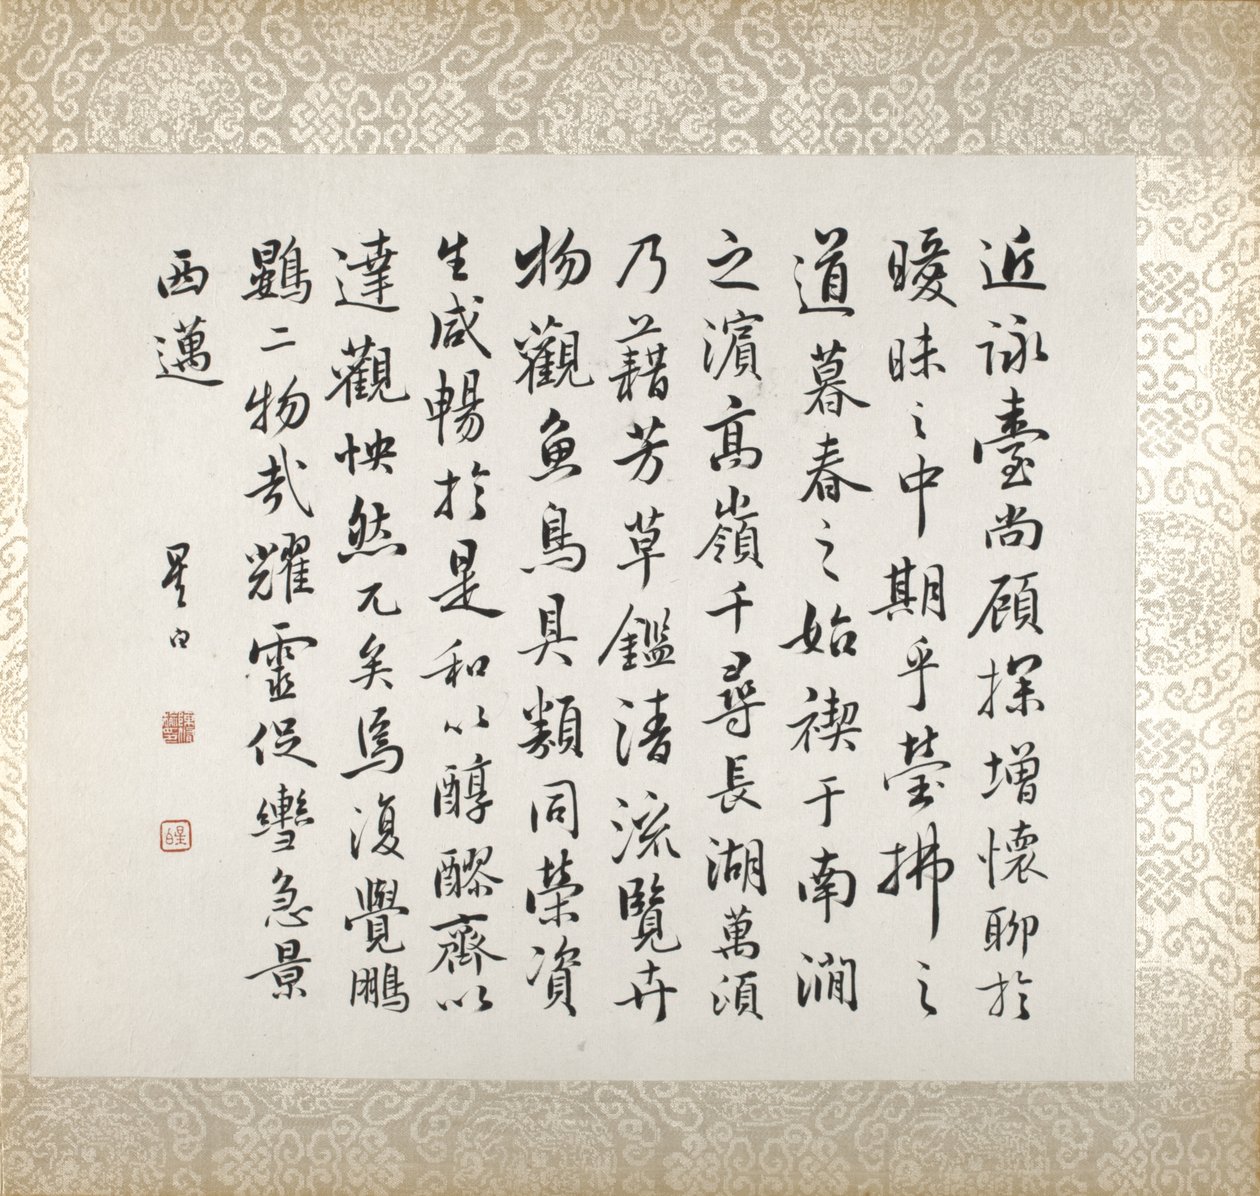 近詠臺尚顧探增懷聊於
曖昧之中期乎瑩拂之
道暮春之始禊于南澗
之濱高嶺千尋長湖萬頃
乃藉芳草鑑清流覽卉
物觀魚鳥具類同榮資
生咸暢於是和以醇醪齊以
達觀怏然兀矣焉復覺鵬
鷃二物哉耀靈促轡急景
西邁
星白
星白